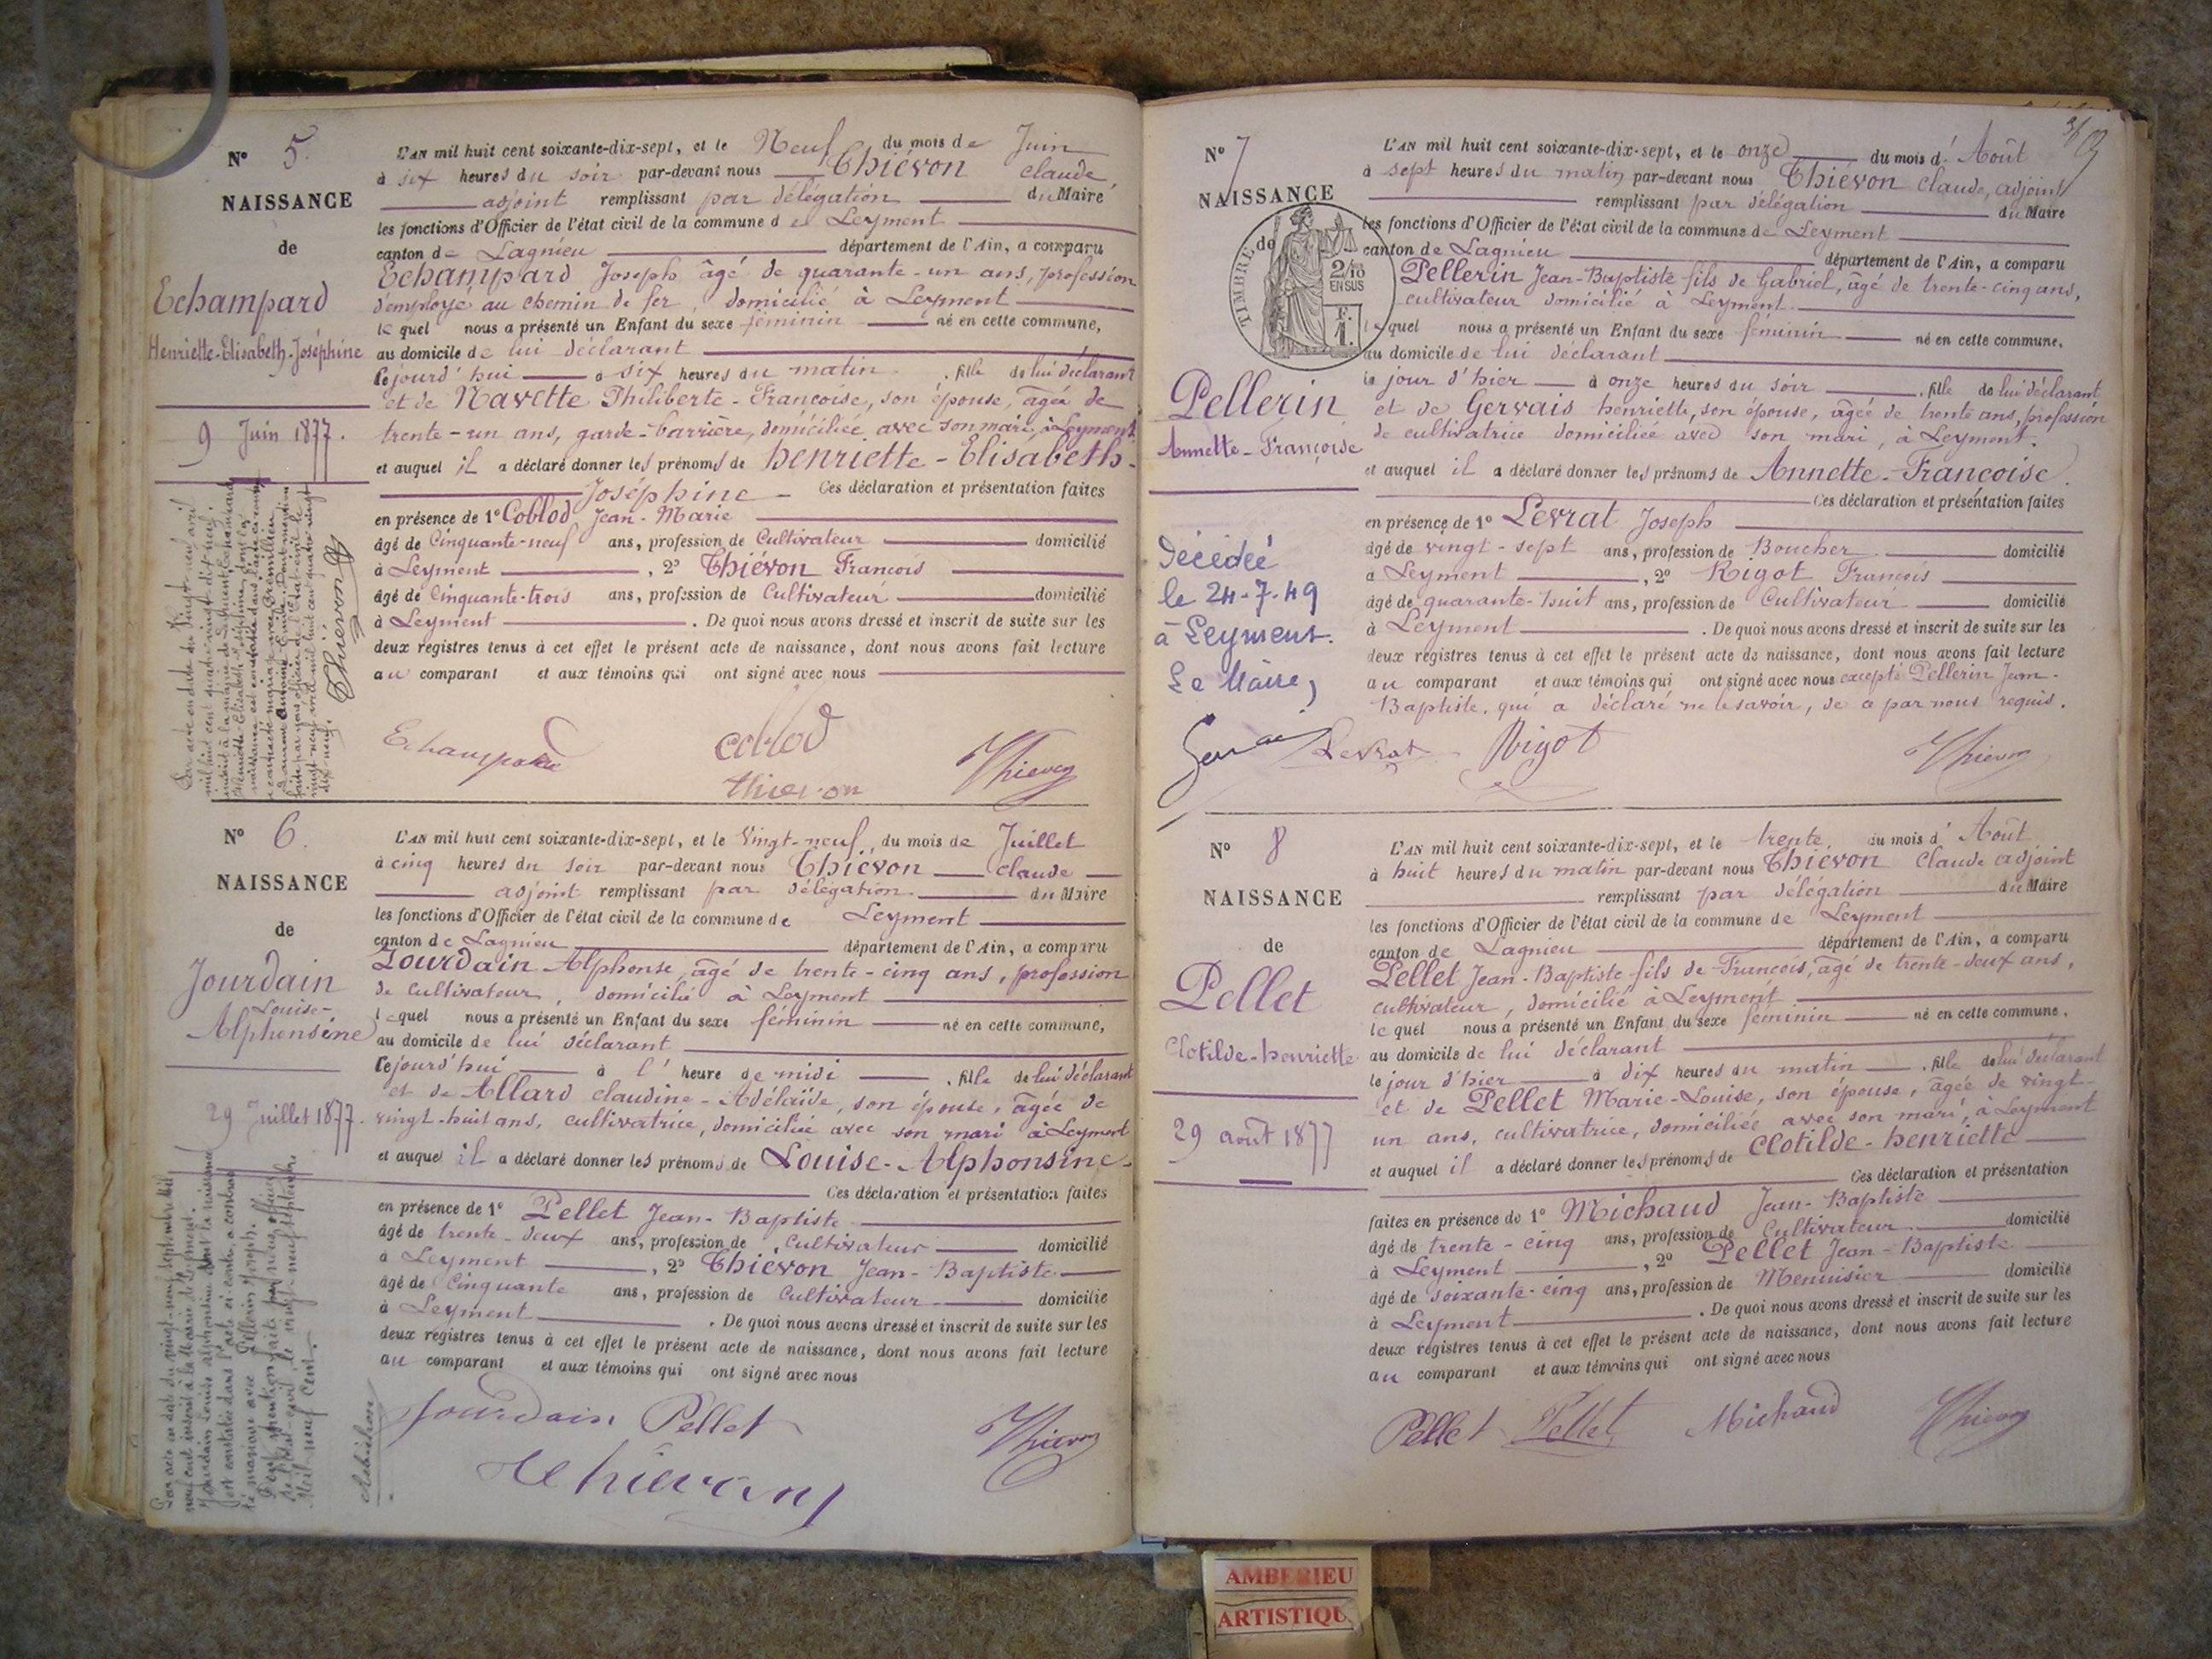 N° 5.
NAISSANCE
de
Echampard
Henriette-Elisabeth-Joséphine
9 Juin 1877.
L'AN mil huit cent soixante-dix-sept, et le Neuf du mois de Juin
à six heures du soir par-devant nous Thiévon Claude,
adjoint remplissant par délégation du Maire
les fonctions d'Officier de l'état civil de la commune de Leyment
canton de Lagnieu département de l'Ain, a comparu
Echampard Joseph âgé de quarante-un ans, profession
d'employé au chemin de fer, domicilié à Leyment
lequel nous a présenté un Enfant du sexe féminin né en cette commune,
au domicile de lui déclarant
cejourd'hui à six heures du matin, fille de lui déclarant
et de Navette Philiberte-Françoise, son épouse, âgée de
trente-un ans, garde-barrière, domiciliée avec son mari, à Leyment
et auquel il a déclaré donner les prénoms de henriette-Elisabeth-
Joséphine - Ces déclaration et présentation faites
en présence de 1° Coblod Jean-Marie
âgé de Cinquante-neuf ans, profession de Cultivateur domicilié
à Leyment, 2° Thiévon François
âgé de Cinquante-trois ans, profession de Cultivateur domicilié
à Leyment. De quoi nous avons dressé et inscrit de suite sur les
deux registres tenus à cet effet le présent acte de naissance, dont nous avons fait lecture
au comparant et aux témoins qui ont signé avec nous
Echampard coblod
thievon Thievon
Thiévon
N° 6.
NAISSANCE
de
Jourdain
Louise-
Alphonsine
29 Juillet 1877.
L'AN mil huit cent soixante-dix-sept, et le Vingt-neuf, du mois de Juillet
à cinq heures du soir par-devant nous Thiévon Claude
adjoint remplissant par délégation du Maire
les fonctions d'Officier de l'état civil de la commune de Leyment
canton de Lagnieu département de l'Ain, a comparu
Jourdain Alphonse, âgé de trente-cinq ans, profession
de cultivateur, domicilié à Leyment
lequel nous a présenté un Enfant du sexe féminin né en cette commune,
au domicile de lui déclarant
cejourd'hui à l'heure de midi, fille de lui déclarant
et de Allard Claudine-Adélaïde, son épouse, âgée de
vingt-huit ans, cultivatrice, domiciliée avec son mari à Leyment
et auquel il a déclaré donner les prénoms de Louise-Alphonsine-
Ces déclaration et présentation faites
en présence de 1° Pellet Jean-Baptiste
âgé de trente-deux ans, profession de Cultivateur domicilié
à Leyment, 2° Thiévon Jean-Baptiste
âgé de Cinquante ans, profession de Cultivateur domicilié
à Leyment. De quoi nous avons dressé et inscrit de suite sur les
deux registres tenus à cet effet le présent acte de naissance, dont nous avons fait lecture
au comparant et aux témoins qui ont signé avec nous
Jourdain Pellet
Thievon
N° 7
NAISSANCE
de
TIMBRE
2/10
EN SUS
F.
1.
Pellerin
Annette-Françoise
Décédée
le 24-7-49
à Leyment.
Le Maire,
L'AN mil huit cent soixante-dix-sept, et le onze du mois d'Août
à sept heures du matin par-devant nous Thiévon Claude, adjoint
remplissant par délégation du Maire
les fonctions d'Officier de l'état civil de la commune de Leyment
canton de Lagnieu département de l'Ain, a comparu
Pellerin Jean-Baptiste fils de Gabriel, âgé de trente-cinq ans,
cultivateur domicilié à Leyment.
lequel nous a présenté un Enfant du sexe féminin né en cette commune,
au domicile de lui déclarant
le jour d'hier à onze heures du soir, fille de lui déclarant
et de Gervais henriette, son épouse, âgée de trente ans, profession
de cultivatrice domiciliée avec son mari, à Leyment.
et auquel il a déclaré donner les prénoms de Annette-Françoise.
Ces déclaration et présentation faites
en présence de 1° Levrat Joseph
âgé de vingt-sept ans, profession de Boucher domicilié
à Leyment, 2° Rigot François
âgé de quarante-huit ans, profession de Cultivateur domicilié
à Leyment. De quoi nous avons dressé et inscrit de suite sur les
deux registres tenus à cet effet le présent acte de naissance, dont nous avons fait lecture
au comparant et aux témoins qui ont signé avec nous excepté Pellerin Jean-
Baptiste, qui a déclaré ne le savoir, de ce par nous requis.
Levrat Rigot Thievon
N° 8
NAISSANCE
de
Pellet
Clotilde-henriette
29 août 1877
L'AN mil huit cent soixante-dix-sept, et le trente du mois d'Août
à huit heures du matin par-devant nous Thiévon Claude adjoint
remplissant par délégation du Maire
les fonctions d'Officier de l'état civil de la commune de Leyment
canton de Lagnieu département de l'Ain, a comparu
Pellet Jean-Baptiste fils de François, âgé de trente-deux ans,
cultivateur, domicilié à Leyment
lequel nous a présenté un Enfant du sexe féminin né en cette commune,
au domicile de lui déclarant
le jour d'hier à dix heures du matin, fille de lui déclarant
et de Pellet Marie-Louise, son épouse, âgée de vingt-
un ans, cultivatrice, domiciliée avec son mari, à Leyment
et auquel il a déclaré donner les prénoms de Clotilde-henriette
Ces déclaration et présentation
faites en présence de 1° Michaud Jean-Baptiste
âgé de trente-cinq ans, profession de Cultivateur domicilié
à Leyment, 2° Pellet Jean-Baptiste
âgé de soixante-cinq ans, profession de Menuisier domicilié
à Leyment. De quoi nous avons dressé et inscrit de suite sur les
deux registres tenus à cet effet le présent acte de naissance, dont nous avons fait lecture
au comparant et aux témoins qui ont signé avec nous
Pellet Pellet Michaud Thievon
AMBERIEU
ARTISTIQU